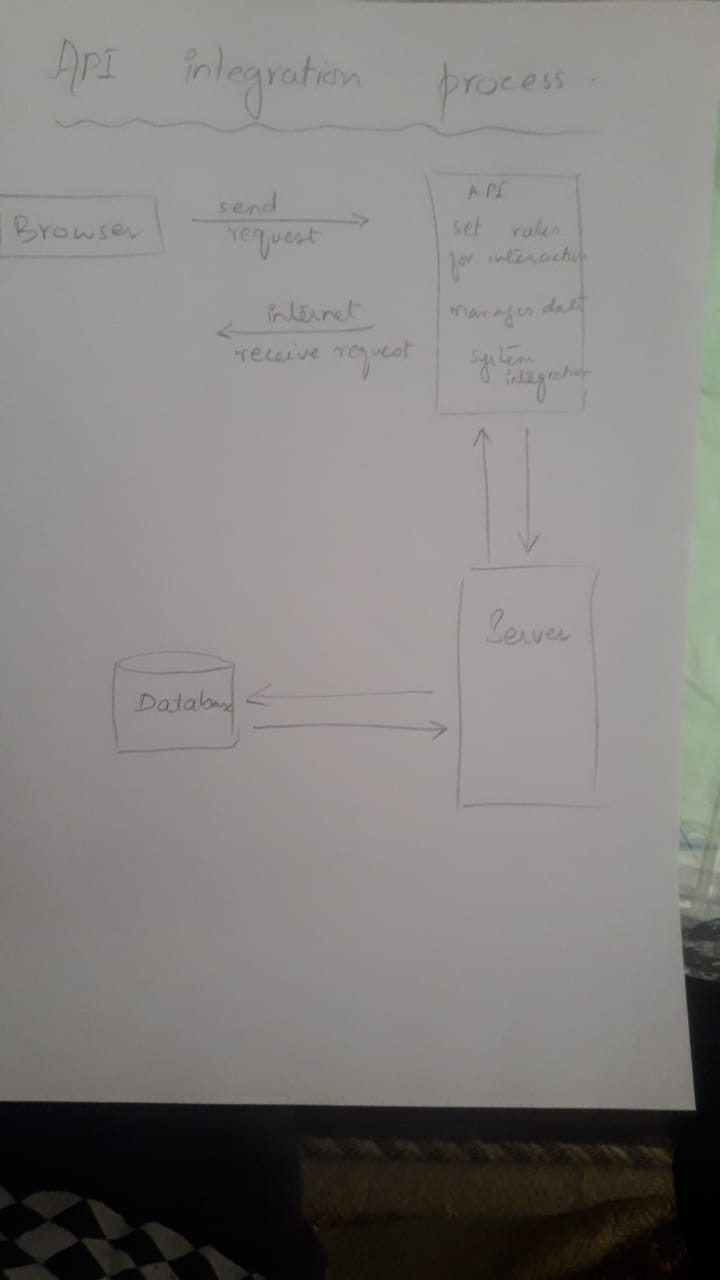 API integration process.
Browser
send
request
internet
receive request
API
set rules
for interaction
manages data
system
integration
Server
Database